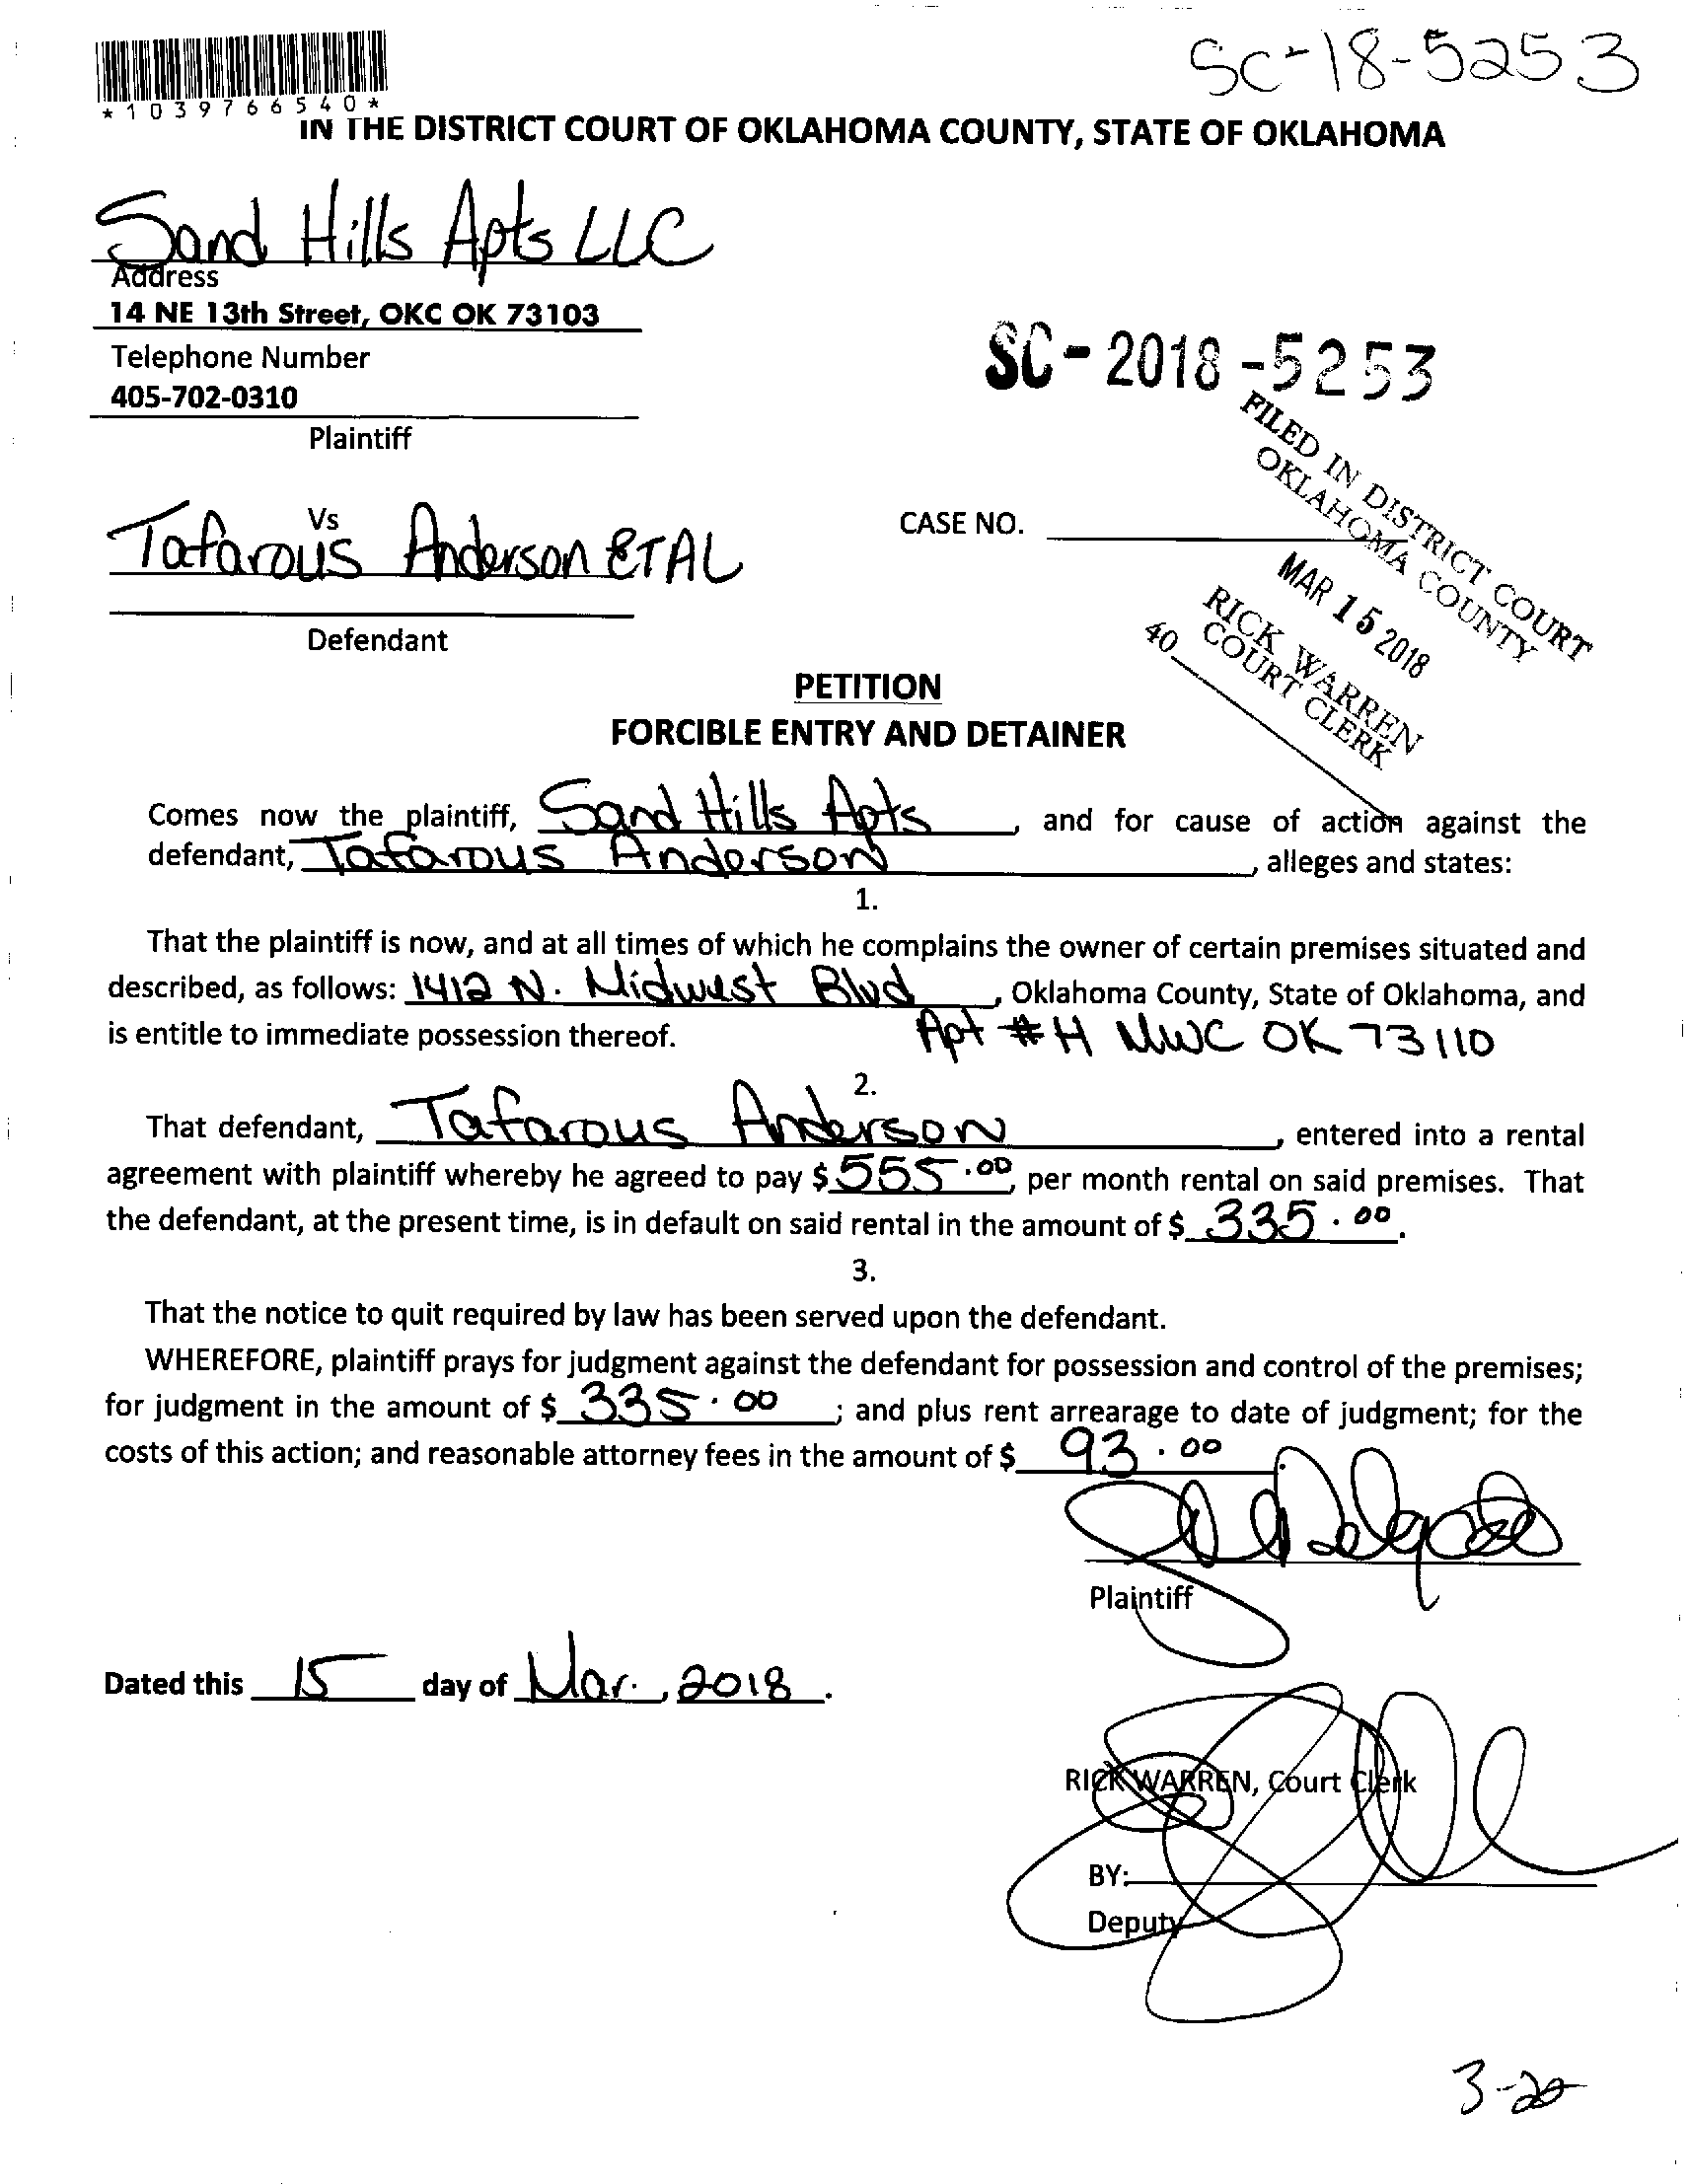 SC-18-5253
*1039766540*
IN THE DISTRICT COURT OF OKLAHOMA COUNTY, STATE OF OKLAHOMA
Sand Hills Apts LLC
Address
14 NE 13th Street, OKC OK 73103
Telephone Number
405-702-0310
Plaintiff
SC-2018-5253
FILED IN DISTRICT COURT
OKLAHOMA COUNTY
MAR 15 2018
RICK WARREN
COURT CLERK
40
Vs
Tafarous Anderson ETAL
CASE NO.
Defendant
PETITION
FORCIBLE ENTRY AND DETAINER
Comes now the plaintiff, Sand Hills Apts, and for cause of action against the
defendant, Tafarous Anderson, alleges and states:
1.
That the plaintiff is now, and at all times of which he complains the owner of certain premises situated and
described, as follows: 1412 N. Midwest Blvd, Oklahoma County, State of Oklahoma, and
is entitle to immediate possession thereof. Apt #H MWC OK 73110
2.
That defendant, Tafarous Anderson, entered into a rental
agreement with plaintiff whereby he agreed to pay $555.00, per month rental on said premises. That
the defendant, at the present time, is in default on said rental in the amount of $ 335.00.
3.
That the notice to quit required by law has been served upon the defendant.
WHEREFORE, plaintiff prays for judgment against the defendant for possession and control of the premises;
for judgment in the amount of $ 335.00; and plus rent arrearage to date of judgment; for the
costs of this action; and reasonable attorney fees in the amount of $ 93.00.
Plaintiff
Dated this 15 day of Mar., 2018.
RICK WARREN, Court Clerk
BY:
Deputy
3-20